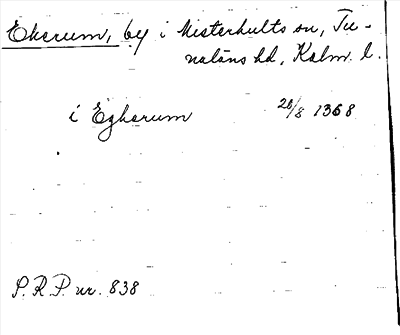 Ekerum, by i Misterhults sn, Tu-
naläns hd, Kalm. l.
i Egherum 26/8 1368
S.R.P. nr. 838